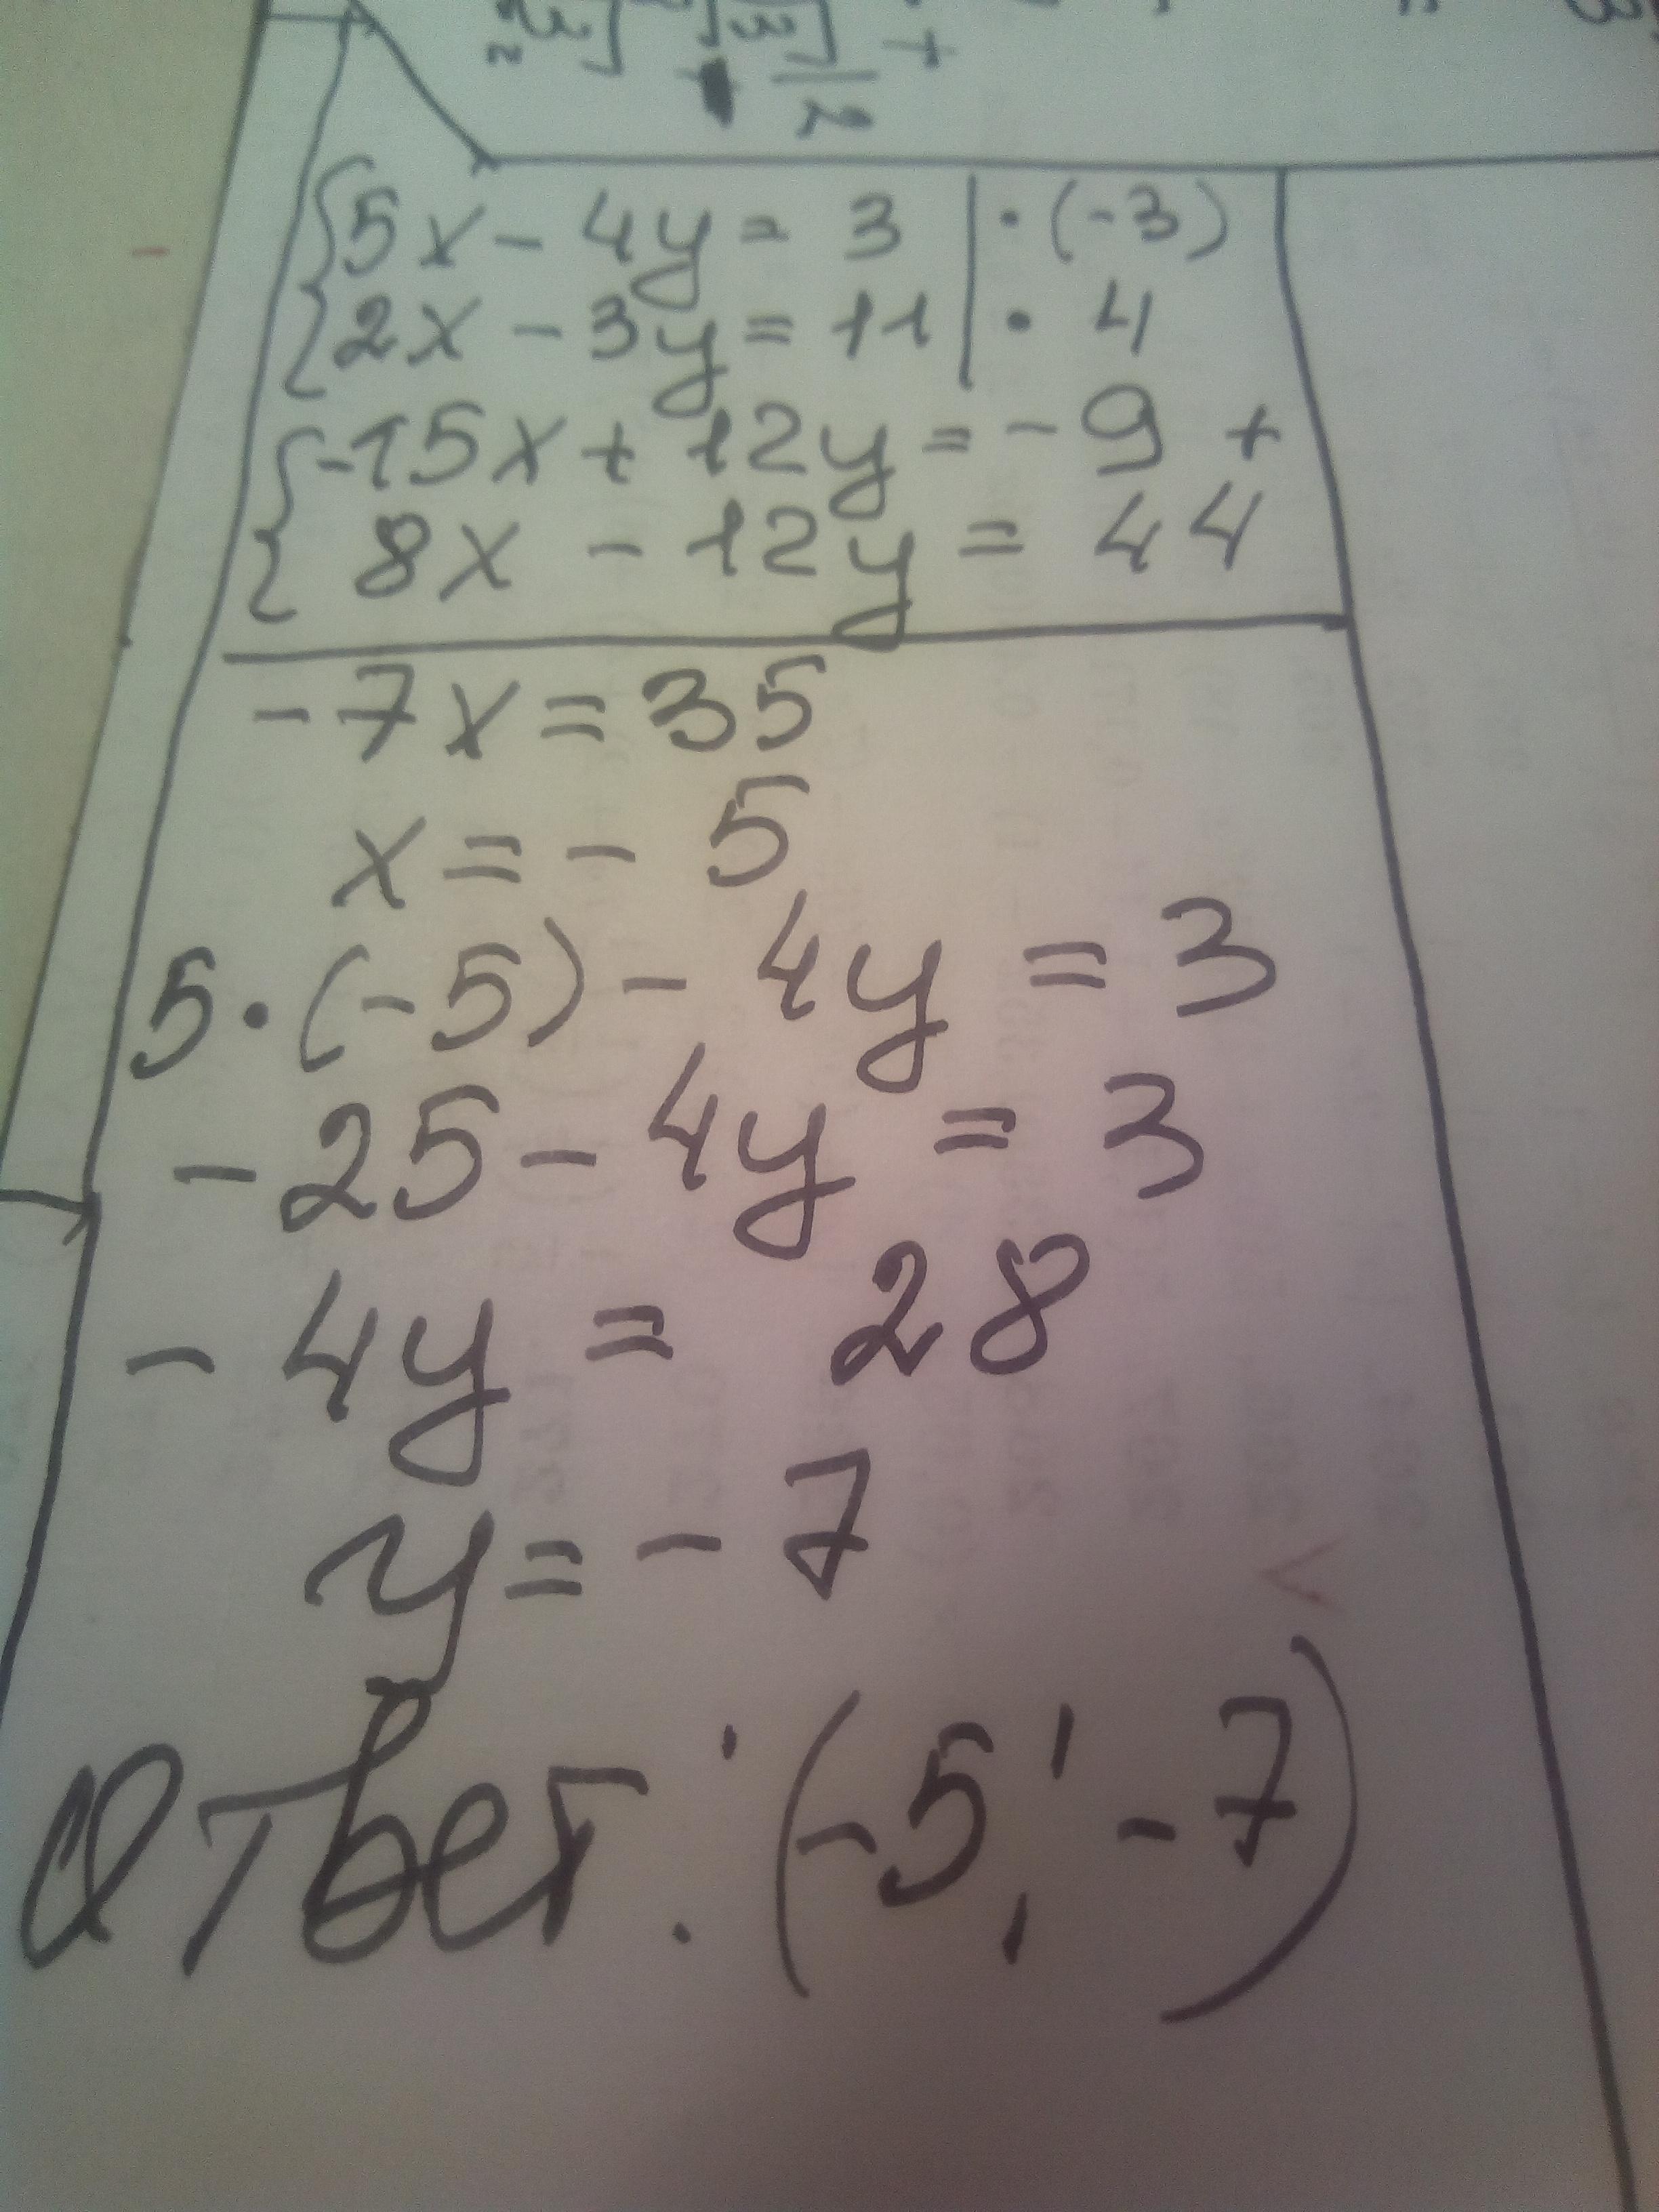 {5x - 4y = 3 | · (-3)
{2x - 3y = 11 | · 4
{-15x + 12y = -9 +
{8x - 12y = 44
-7x = 35
x = -5
5·(-5) - 4y = 3
-25 - 4y = 3
-4y = 28
y = -7
Ответ: (-5; -7)